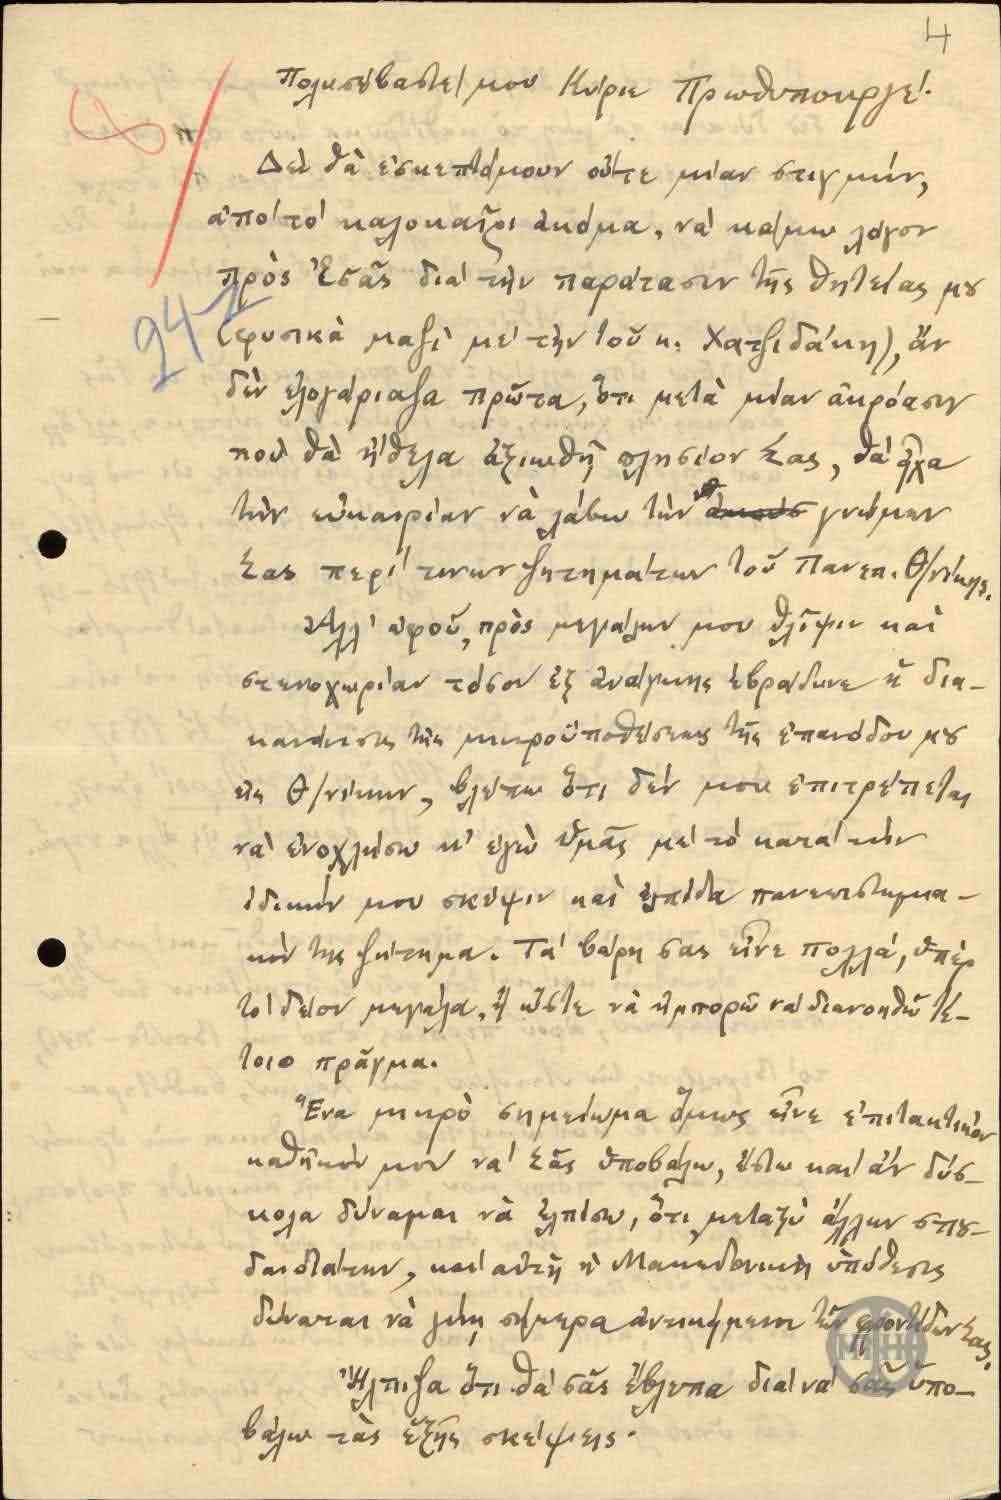 4
8
942
Πολυσέβαστέ μου Κύριε Πρωθυπουργέ.
Δὲν θὰ ἐσκεπτόμουν οὔτε μίαν στιγμήν,
ἀπὸ τὸ καλοκαῖρι ἀκόμα, νὰ κάμω λόγον
πρὸς Ἐσᾶς διὰ τὴν παράτασιν τῆς θητείας μου
(φυσικὰ μαζὶ μὲ τὴν τοῦ κ. Χατζιδάκη), ἂν
δὲν ἐλογάριαζα πρῶτα, ὅτι μετὰ μίαν ἀκρόασιν
ποὺ θὰ ἤθελα ἀξιωθῆ πλησίον Σας, θὰ εἶχα
τὴν εὐκαιρίαν νὰ λάβω τὴν γνώμην
Σας περὶ τινων ζητημάτων τοῦ Πανεπ. Θ/νίκης.
Ἀλλ' ἀφοῦ, πρὸς μεγάλην μου θλῖψιν καὶ
στενοχωρίαν τόσον ἐξ ἀνάγκης ἐβράδυνε ἡ δια-
κανόνισις τῆς μικροϋποθέσεως τῆς ἐπανόδου μου
εἰς Θ/νίκην, βλέπω ὅτι δέν μου ἐπιτρέπεται
νὰ ἐνοχλήσω κ' ἐγὼ ὑμᾶς μὲ τὸ κατὰ τὴν
ἰδικήν μου σκέψιν καὶ ἐλπίδα πανεπιστημια-
κόν της ζήτημα. Τὰ βάρη σας εἶνε πολλά, ὑπὲρ
τὸ δέον μεγάλα, ἢ ὥστε νὰ ἠμπορῶ νὰ διανοηθῶ τέ-
τοιο πρᾶγμα.
Ἕνα μικρὸ σημείωμα ὅμως εἶνε ἐπιτακτικὸν
καθῆκόν μου νὰ Σᾶς ὑποβάλω, ἔστω καὶ ἂν δύσ-
κολα δύναμαι νὰ ἐλπίσω, ὅτι, μεταξὺ ἄλλων σπου-
δαιοτάτων, καὶ αὐτὴ ἡ Μακεδονικὴ ὑπόθεσις
δύναται νὰ γίνῃ σήμερα ἀντικείμενον τῶν φροντίδων Σας.
Ἤλπιζα ὅτι θὰ σᾶς ἔβλεπα διὰ νὰ σᾶς ὑπο-
βάλω τὰς ἑξῆς σκέψεις.